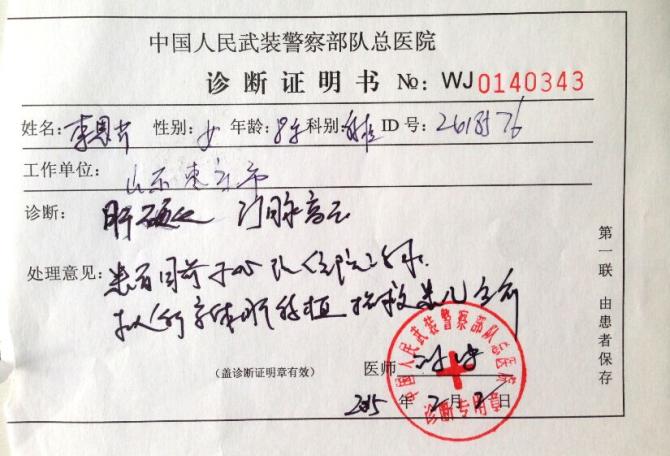 中国人民武装警察部队总医院
诊断证明书 №: WJ0140343
姓名: 性别:女 年龄: 科别: ID号:2618576
工作单位: 山东枣庄市
诊断: 肝硬化 门脉高压
处理意见: 患者目前于
拟行 肝移植 挽救患儿
第一联 由患者保存
医师
(盖诊断证明章有效)
2015年2月2日
中国人民武装警察部队总医院
诊断专用章